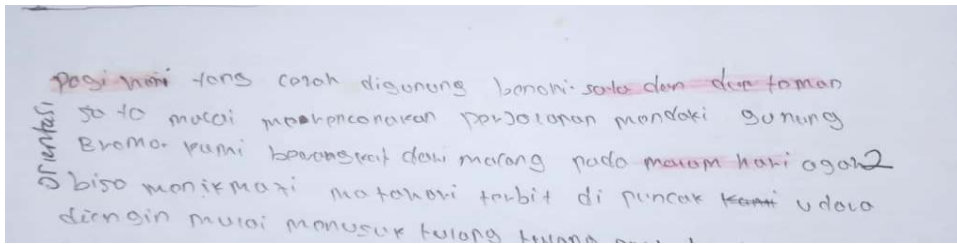 Pagi hari yang cerah digunung benari. saya dan dua taman
saya mulai merencanakan perjalanan mendaki gunung
Bromo. kami berangkat dari malang pada malam hari agar2
bisa menikmati matahari terbit di puncak kami udara
diengin mulai menusuk tulang
orientasi